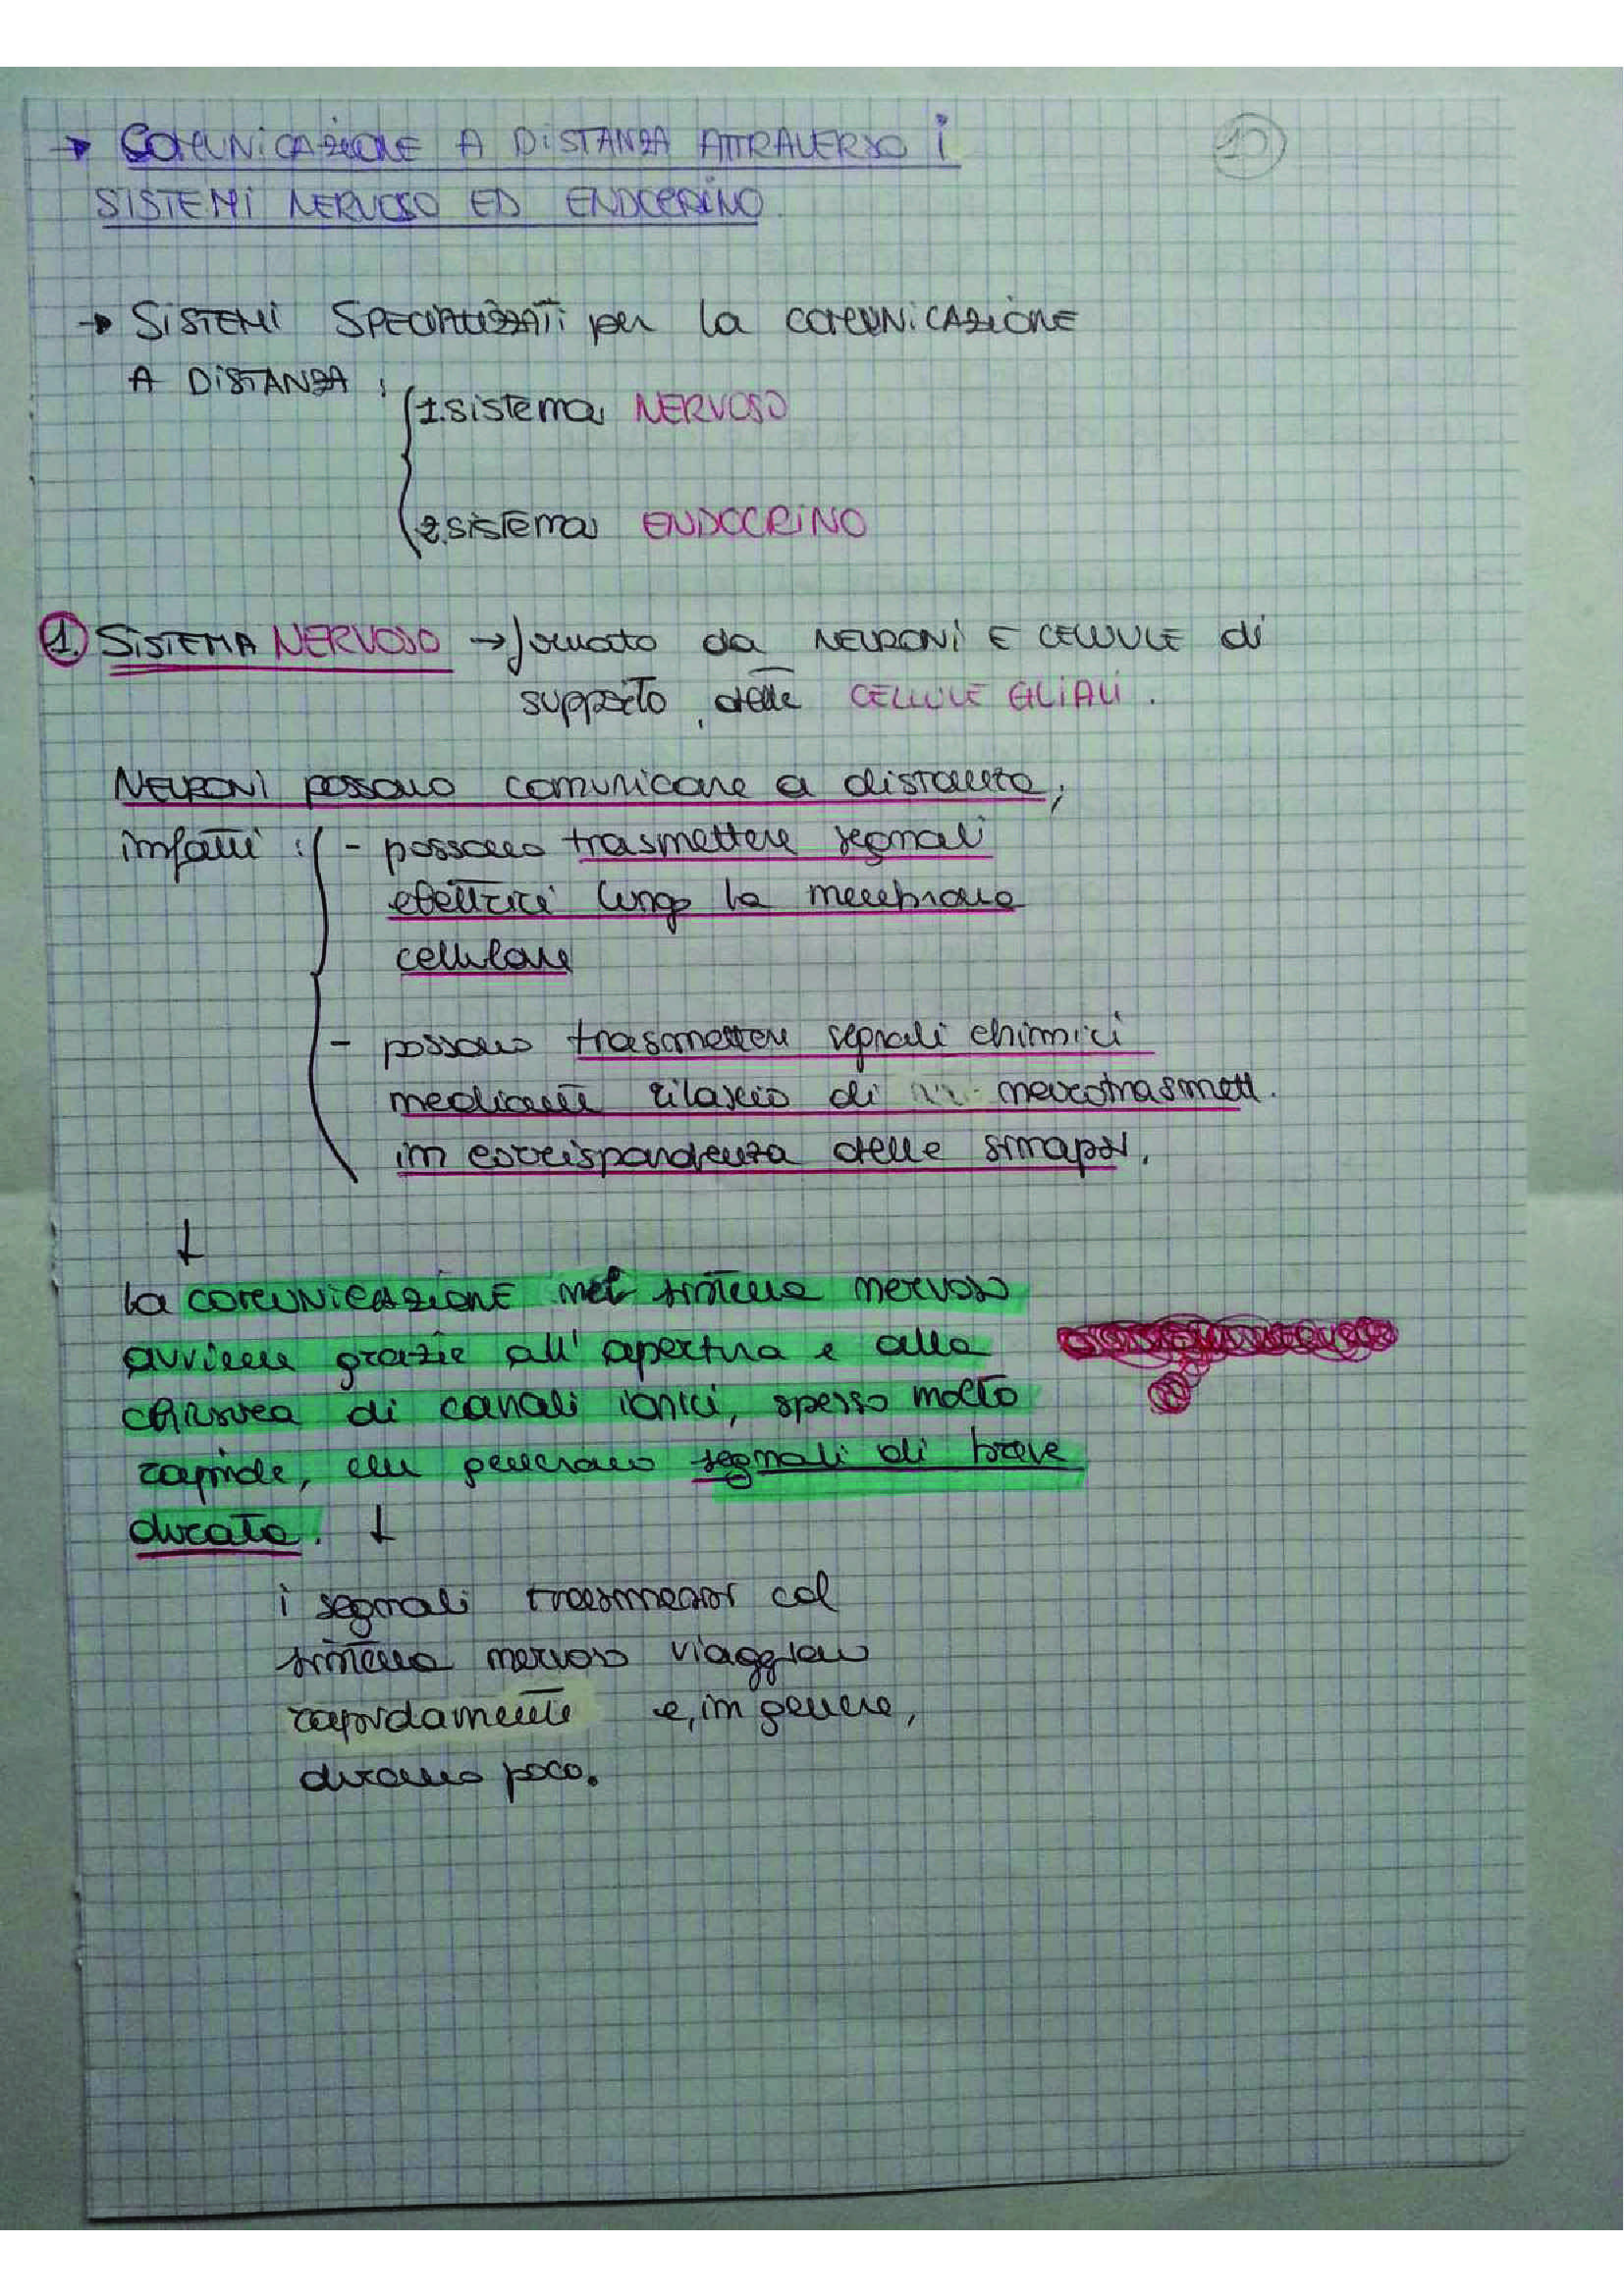 10
→ COMUNICAZIONE A DISTANZA ATTRAVERSO i
SISTEMI NERVOSO ED ENDOCRINO
→ SISTEMI SPECIALIZZATI per la COMUNICAZIONE
A DISTANZA :
1. sistema NERVOSO
2. sistema ENDOCRINO
1. SISTEMA NERVOSO → formato da NEURONI E CELLULE di
supporto, dette CELLULE GLIALI.
NEURONI possono comunicare a distanza,
infatti : - possono trasmettere segnali
elettrici lungo la membrana
cellulare
- possono trasmettere segnali chimici
mediante rilascio di neurotrasmett.
in corrispondenza delle sinapsi.
↓
la COMUNICAZIONE nel sistema nervoso
avviene grazie all'apertura e alla
chiusura di canali ionici, spesso molto
rapide, che generano segnali di breve
durata. ↓
i segnali trasmessi col
sistema nervoso viaggiano
rapidamente e, in genere,
durano poco.